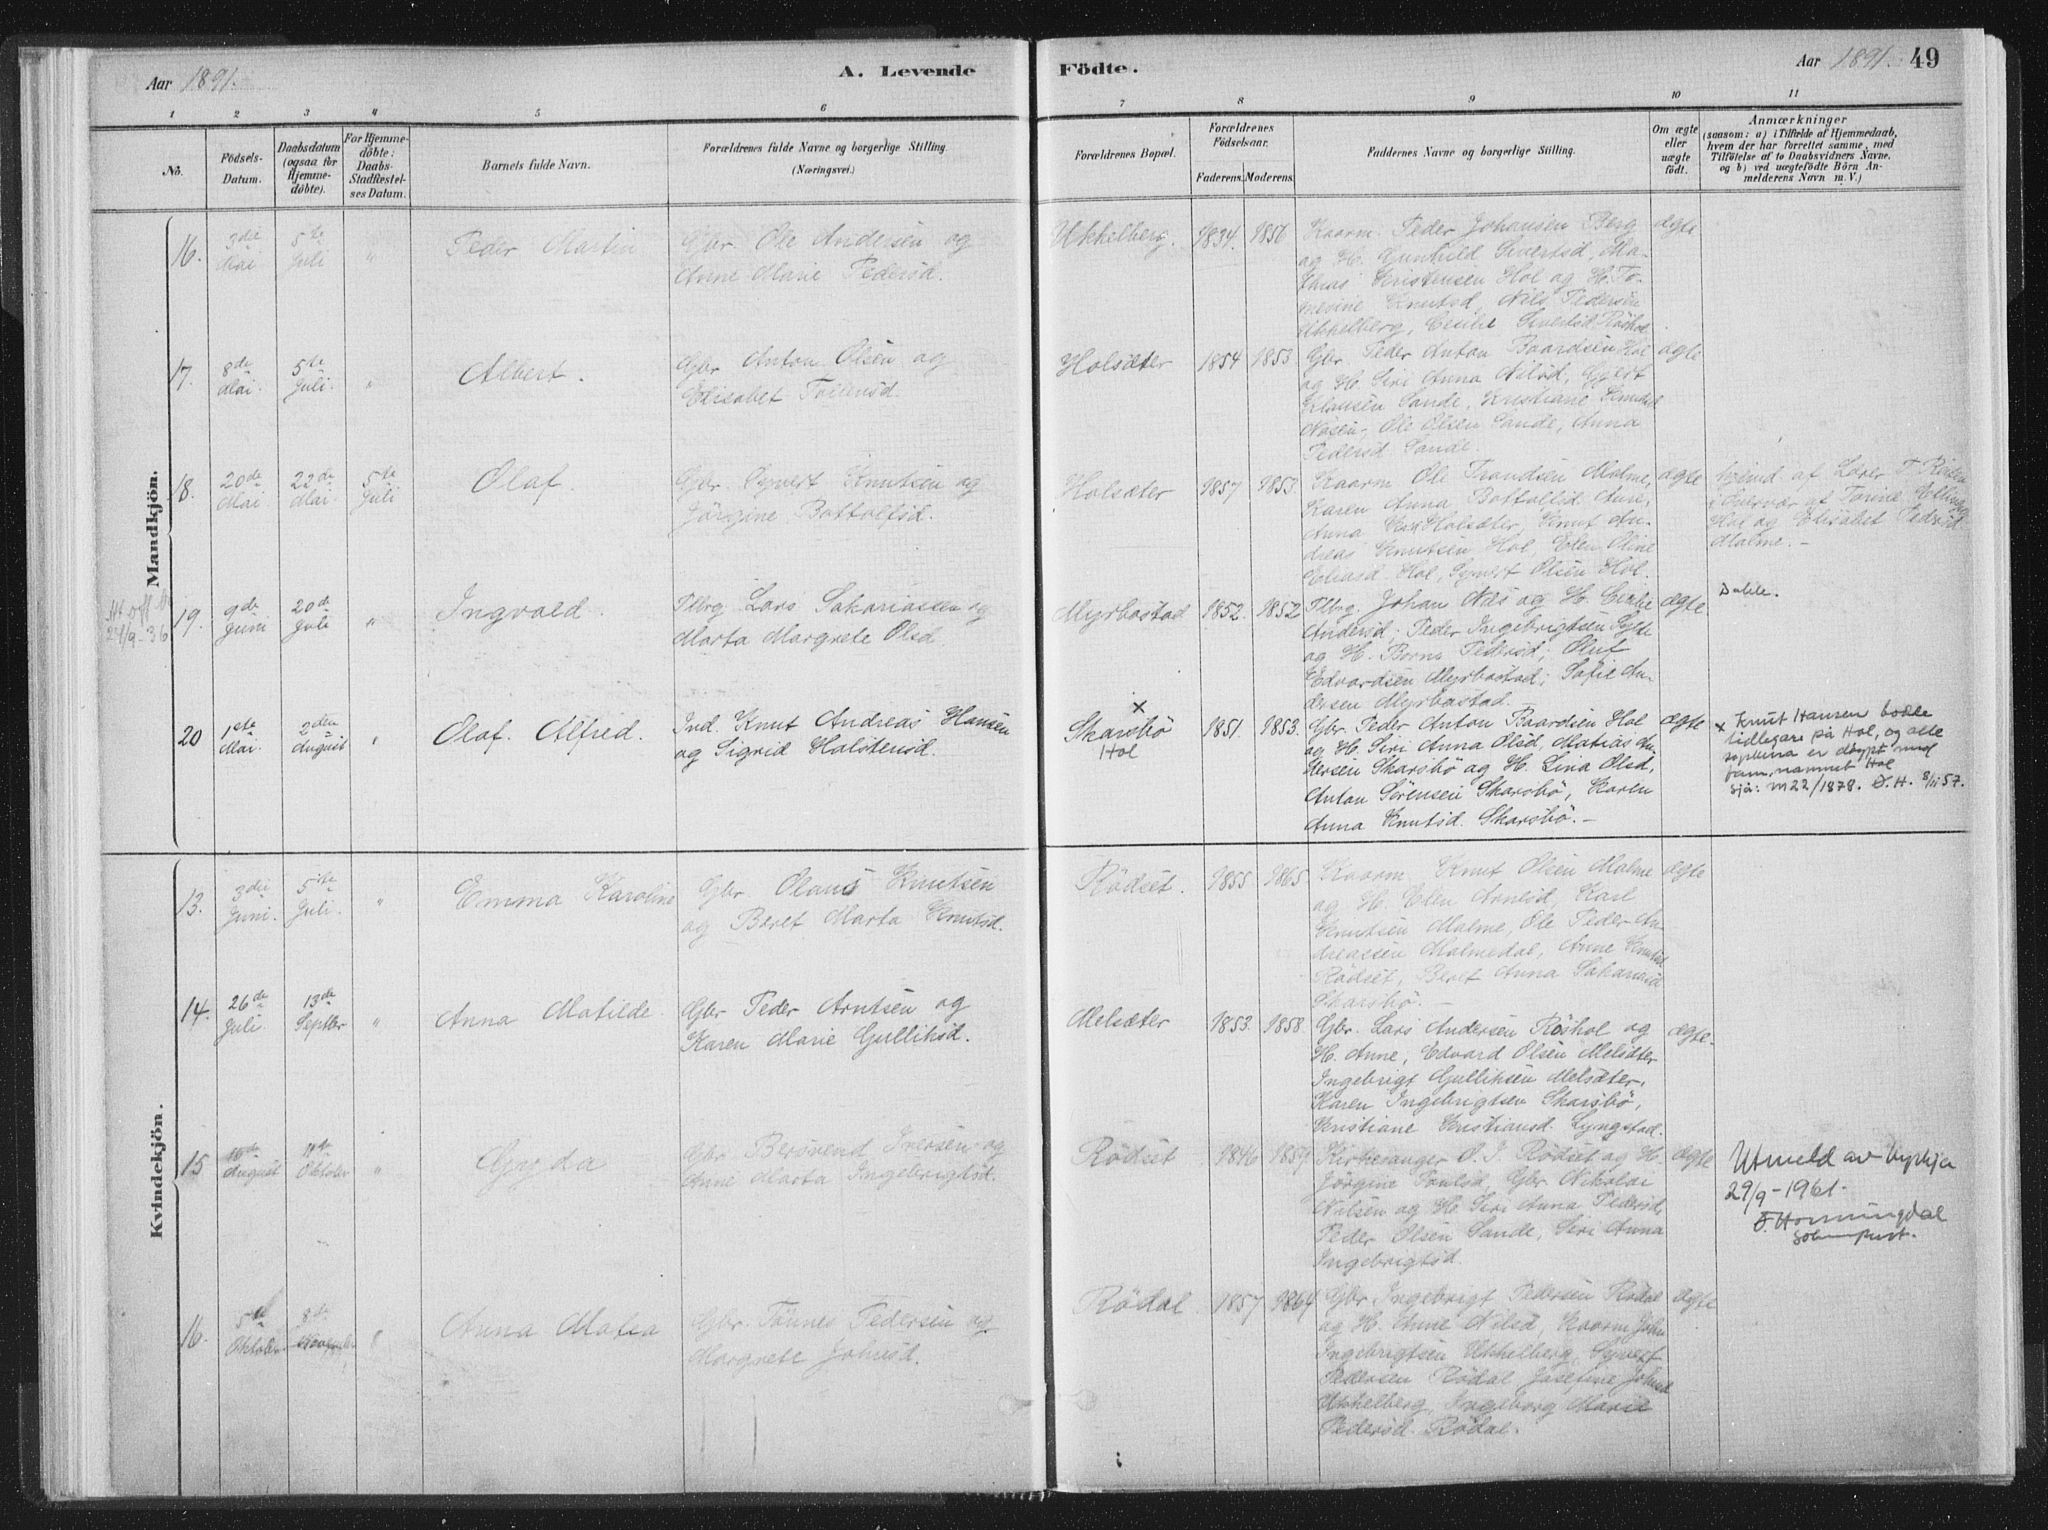 Aar 1891.
A. Levende
Födte.
Aar 1891. 49
1 2 3 4 5 6 7 8 9 10 11
No.
Födsels-
Datum.
Daabsdatum
(ogsaa for
Hjemme-
döbte).
For Hjemme-
döbte:
Daabs-
Stadfæstel-
ses Datum.
Barnets fulde Navn.
Forældrenes fulde Navne og borgerlige Stilling.
(Næringsvei.)
Forældrenes Bopæl.
Forældrenes
Födselsaar.
Faderens. Moderens.
Faddernes Navne og borgerlige Stilling.
Om ægte
eller
uægte
födt.
Anmærkninger
(saasom: a) i Tilfælde af Hjemmedaab,
hvem der har forrettet samme, med
Tilföielse af to Daabsvidners Navne,
og b) ved uægtefödte Börn An-
melderens Navn m. V.)
Mandkjön.
16. 3die Mai 5te Juli " Peder Martin
Gbr. Ole Andersen og
Anne Marie Pedersd.
Ukkelberg. 1834. 1856
Kaarm. Peder Johansen Berg
og H. Gunhild Sivertsd, Ma-
thias Kristensen Hol og H. To-
mesine Knutsd, Nils Pedersen
Ukkelberg, Cecilie Sivertsd Röshol
ægte
17. 8de Mai. 5te Juli. " Albert.
Gbr Anton Olsen og
Elisabet
Holsæter 1854 1853.
Gbr. Peder Anton Baardsen Hol
og H. Siri Anna Nilsd, Gjert
Klausen Sande, Kristiane Knutsd
Næsen, Ole Olsen Sande, Anna
Pedersd Sande.
ægte
18. 20de Mai 22de Mai 5te Juli Olaf.
Gbr. Syvert Knutsen og
Jörgine Bottolfsd.
Holsæter 1857 1853.
Kaarm Ole Trondsen Malme,
Karen Anna Bottolfsd Aure,
Anna Holsæter, Knut An-
dreas Knutsen Hol, Elen Oline
Eliasd Hol, Syvert Olsen Hol.
ægte
af Lærer
i Overvær af Torine
Hol og Elisabet Pedersd
Malme. -
Att. utf.
24/9-36
19. 9de Juni 20de Juli " Ingvald.
Flbrg. Lars Sakariassen og
Marta Margrete Olsd
Myrbostad 1852. 1852
Flbrg. Johan Næs og H. Cecilie
Andersd; Peder Ingebrigtsen Sylte
og H. Berne Pedersd; Oluf
Edvardsen Myrbostad; Sofie An-
dersen Myrbostad.
ægte
20 1ste Mai. 2den August " Olaf Alfred.
Ind. Knut Andreas Hansen
og Sigrid Halstensd.
x
Skarsbö
Hol
1851. 1853.
Gbr. Peder Anton Baardsen Hol
og H. Siri Anna Olsd, Matias An-
dersen Skarsbö og H. Lina Olsd,
Anton Sörensen Skarsbö, Karen
Anna Knutsd. Skarsbö. -
ægte
x Knut Hansen bodde
tidlegare på Hol, og alle
er døypt med
fam.namnet Hol
sjå: m22/1878. Ø.H. 8/11 57.
Kvindekjön.
13. 3die Juni. 5te Juli. " Emma Karoline
Gbr Olaus Knutsen
og Beret Marta Knutsd.
Rödset. 1855 1865
Kaarm. Knut Olsen Malme
og H. Elen Arnesd, Karl
Knutsen Malme, Ole Peder An-
dreassen Malmedal, Anne Knutsd
Rödset, Beret Anna Sakariasd
Skarsbö. -
ægte
14. 26de Juli. 13de Septbr " Anna Matilde.
Gbr Peder Arntsen og
Karen Marie Gulliksd.
Melsæter 1853. 1858.
Gbr. Lars Andersen Röshol og
H. Anne, Edvard Olsen Melsæter
Ingebrigt Gulliksen Melsæter,
Karen Ingebrigtsen Skarsbö,
Kristiane Kristiansd Lyngstad.
ægte.
15 August Oktober " Gyda
Gbr Bersvend Iversen og
Anne Marta Ingebrigtsd.
Rödset 1846 1859
Kirkesanger O. I. Rödset og H.
Jörgine Paulsd, Gbr. Nikolai
Nilsen og H. Siri Anna Pedersd,
Peder Olsen Sande, Siri Anna
Ingebrigtsd.
ægte
Utmeld av kyrkja
29/9-1961.
Hornindal
sokneprest.
16. 5te Oktober 8de " Anna Matea
Gbr. Tönnes Pedersen og
Margrete Johnsd.
Rödal 1857 1864
Gbr Ingebrigt Pedersen Rödal
og H. Anne Nilsd, Kaarm John
Ingebrigtsen Ukkelberg, Syvert
Pedersen Rödal Josefine Johnsd
Ukkelberg, Ingeborg Marie
Pedersd. Rödal.
ægte